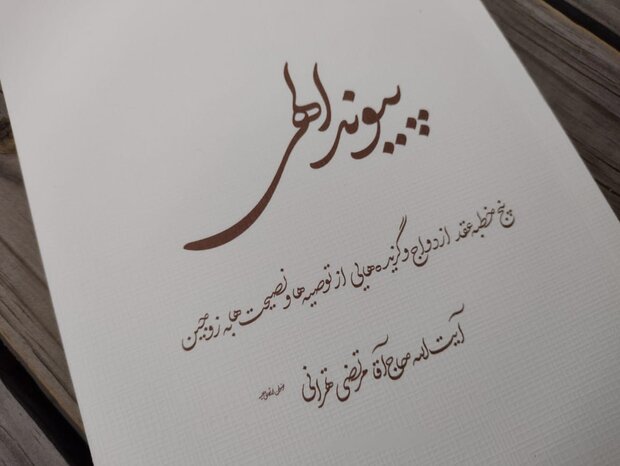 پیوند الهی
پنج خطبه عقد ازدواج و گزیده‌هایی از توصیه‌ها و نصیحت‌ها به زوجین
آیت الله حاج آقا مرتضی تهرانی